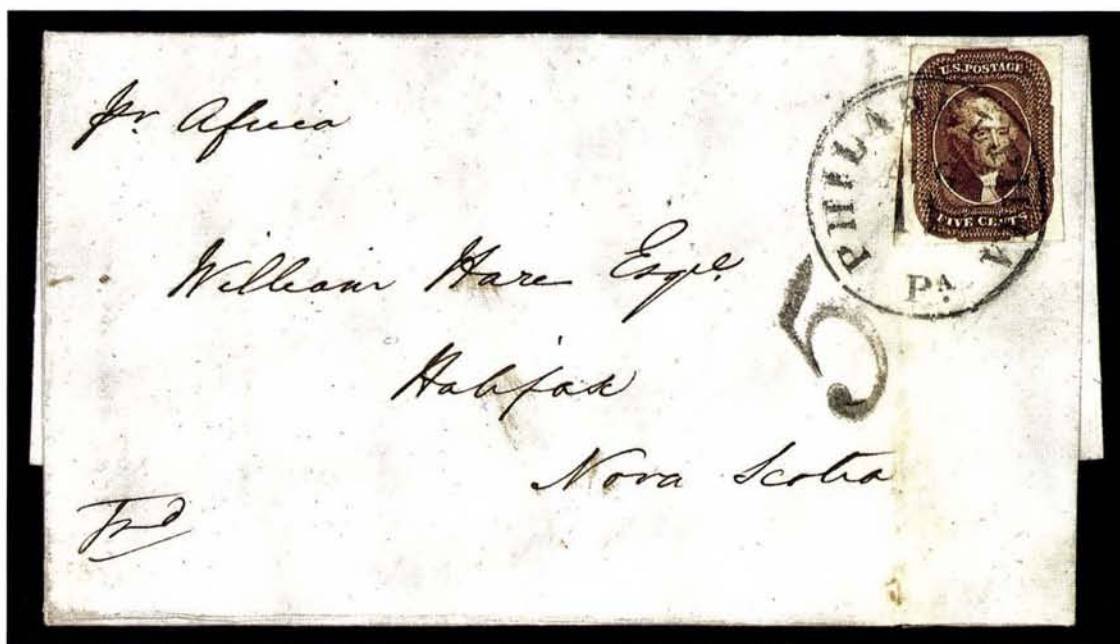 pr Africa
U.S. POSTAGE
FIVE CENTS
PHILADELPHIA
PA
William Hare Esqe.
5
Halifax
Nova Scotia